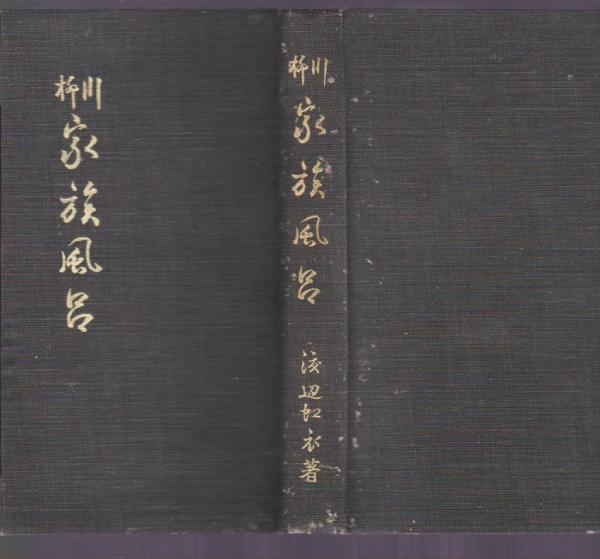 川柳
家族風呂
川柳
家族風呂
渡辺虹衣著